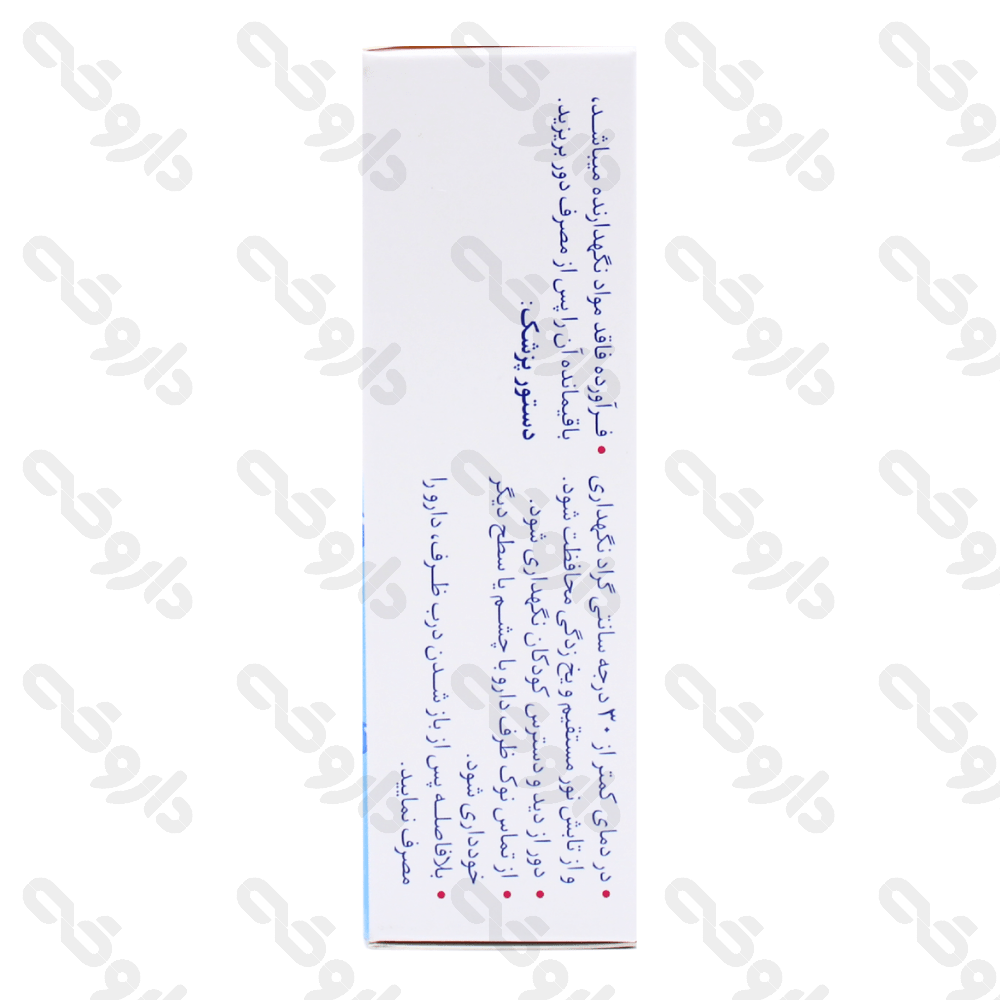 در دمای کمتر از ۳۰ درجه سانتی گراد نگهداری
و از تابش نور مستقیم و یخ زدگی محافظت شود.
دور از دید و دسترس کودکان نگهداری شود.
از تماس نوک ظرف دارو با چشم یا سطح دیگر
خودداری شود.
بلافاصله پس از باز شدن درب ظرف، دارو را
مصرف نمایید.
فرآورده فاقد مواد نگهدارنده میباشد،
باقیمانده آن را پس از مصرف دور بریزید.
دستور پزشک:
داروکده